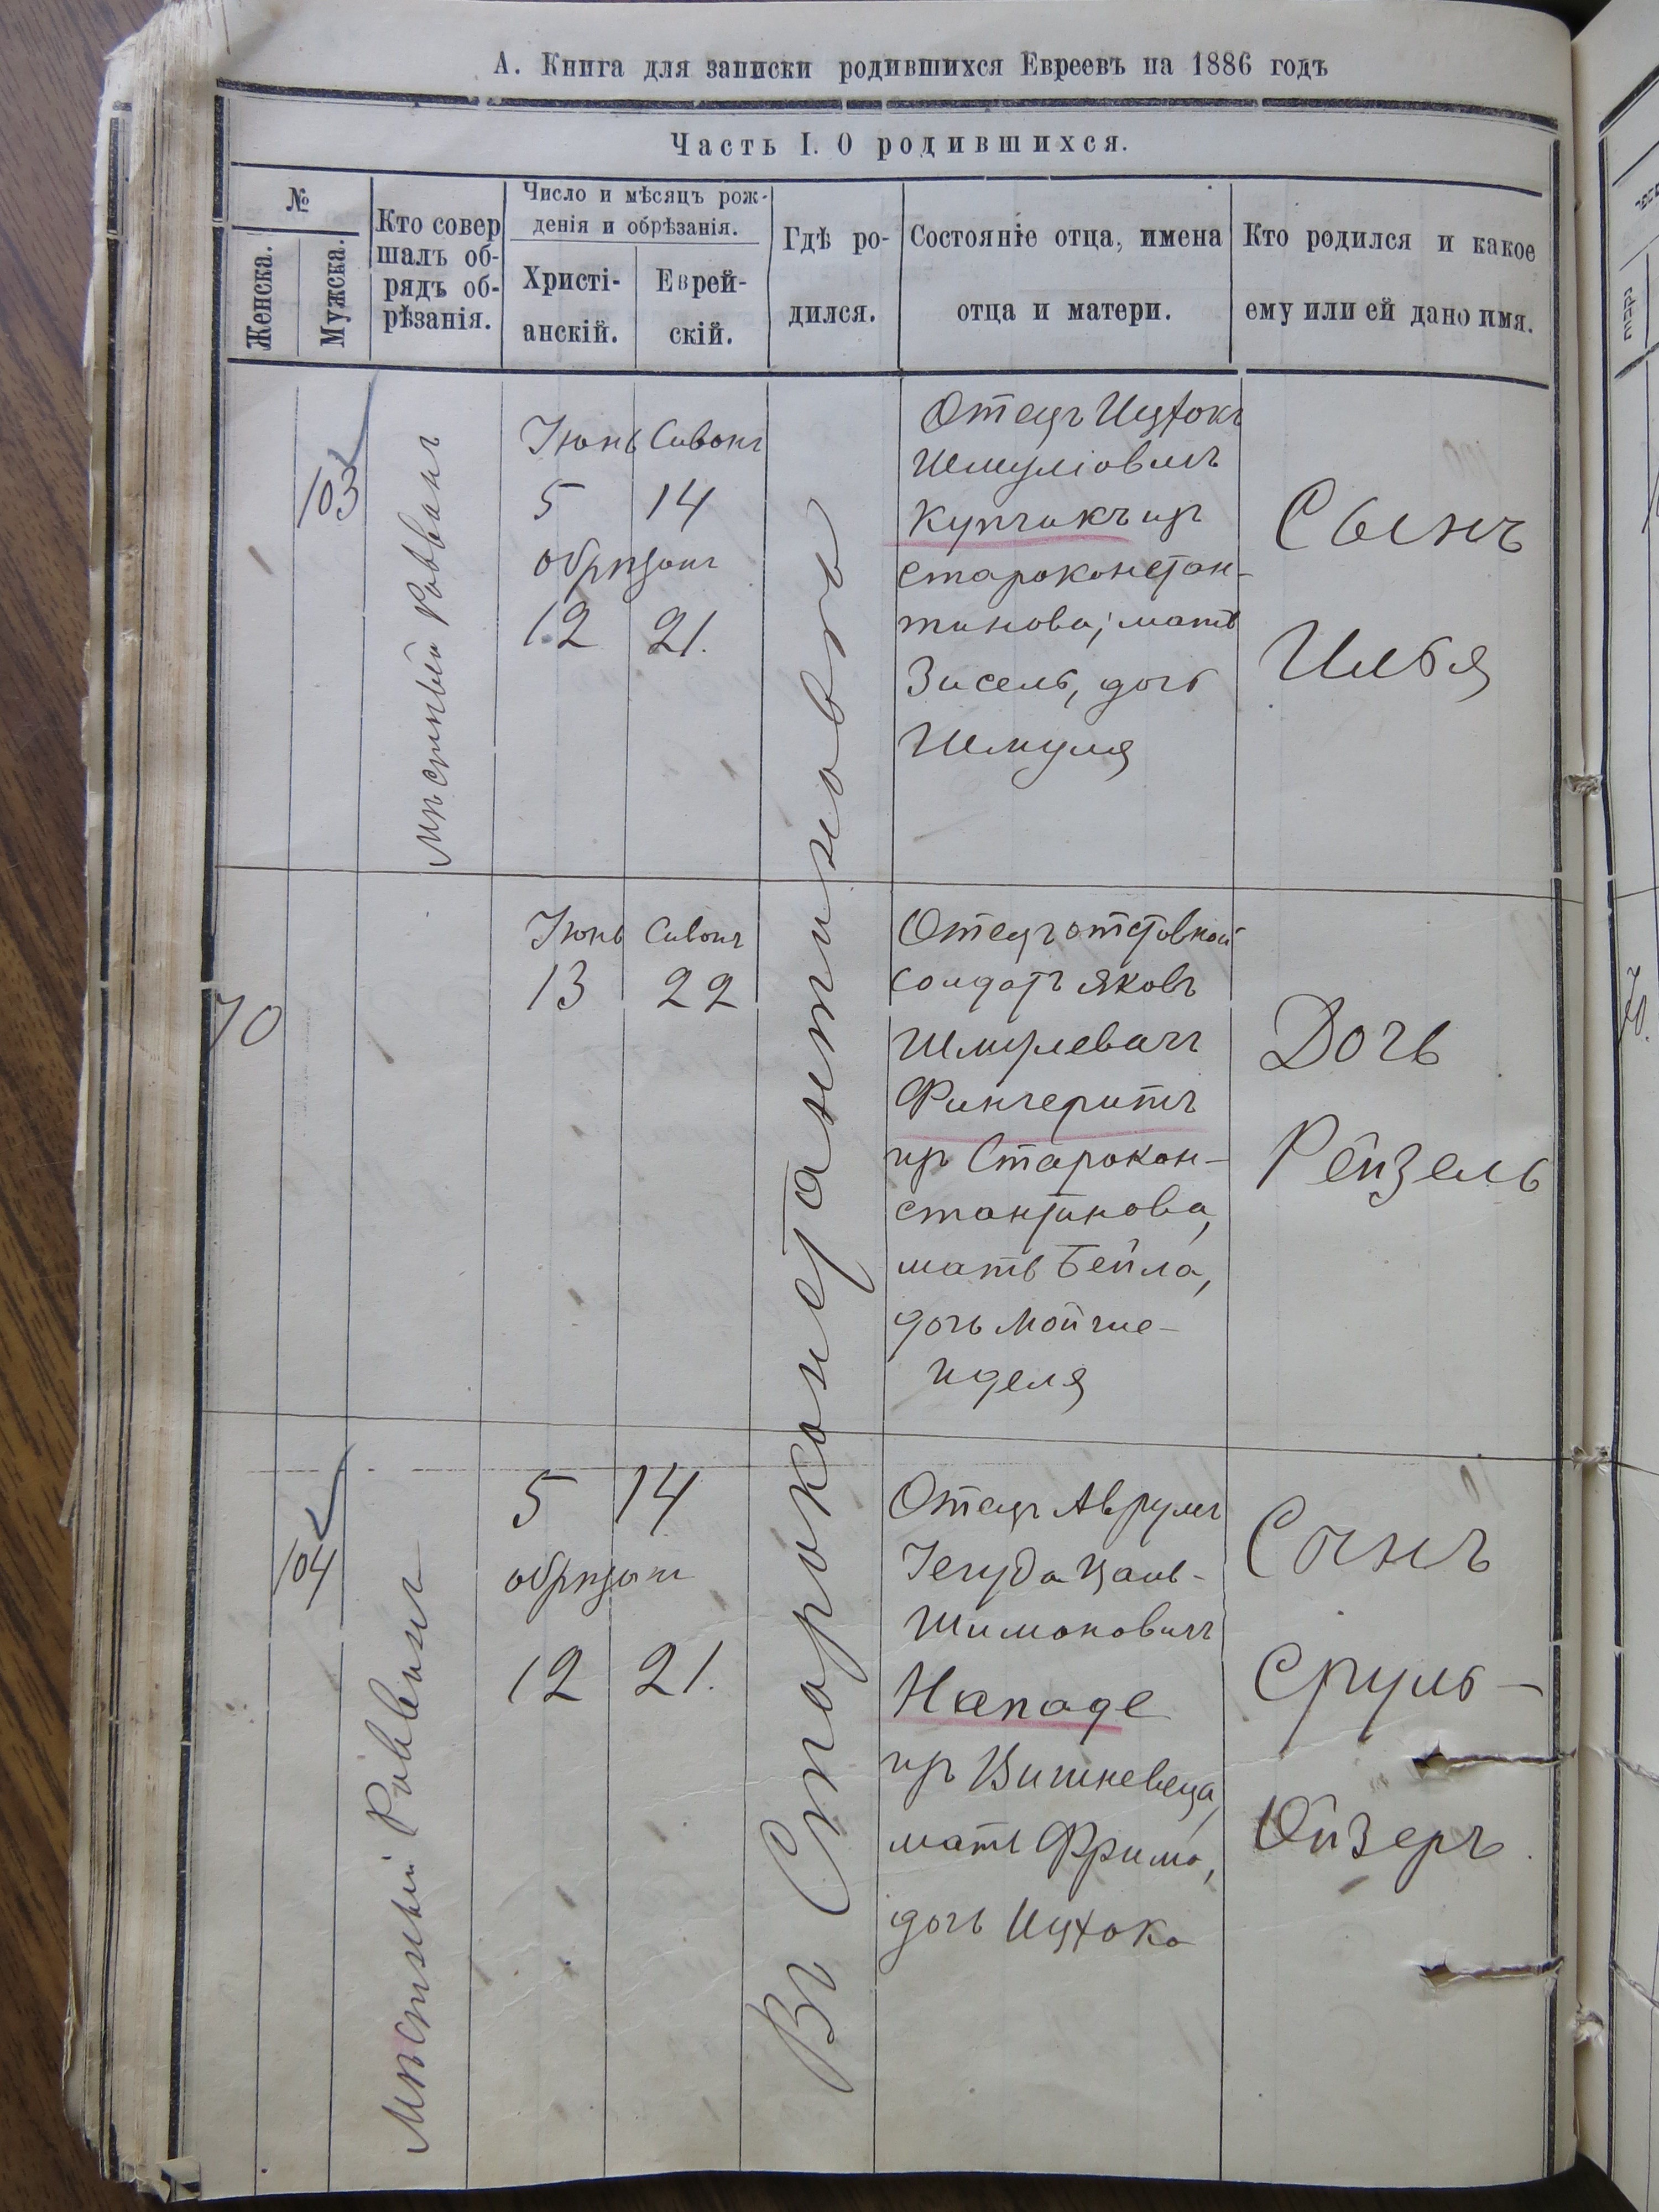 А. Книга для записки родившихся Евреевъ на 1886 годъ
Часть I. О родившихся.
№
Женска.
Мужска.
Кто совер
шалъ об-
рядъ об-
рѣзанія.
Число и мѣсяцъ рож-
денія и обрѣзанія.
Христі-
анскій.
Еврей-
скій.
Гдѣ ро-
дился.
Состояніе отца, имена
отца и матери.
Кто родился и какое
ему или ей дано имя.
103
мѣстный Раввинъ
Іюнь Сивонъ
5 14
обрѣзанъ
12 21.
Въ Староконстантиновѣ
Отецъ Ицхокъ
Шмуліовичъ
Купчикъ изъ
Староконстан-
тинова; мать
Зисель, дочь
Шмуля
Сынъ
Илья
70
Іюнь Сивонъ
13 22
Отецъ отставной
солдатъ Яковъ
Шмулевичъ
Фингерить
изъ Старокон-
стантинова,
мать Бейла,
дочь Мойше-
Иделя
Дочь
Рейзель
104
Мѣстный Раввинъ
5 14
обрѣзанъ
12 21.
Отецъ Аврумъ
Іегуда
Шимоновичъ
изъ Вишневеца,
мать Фрима,
дочь Ицхока
Сынъ
Сруль-
Ойзеръ
70.